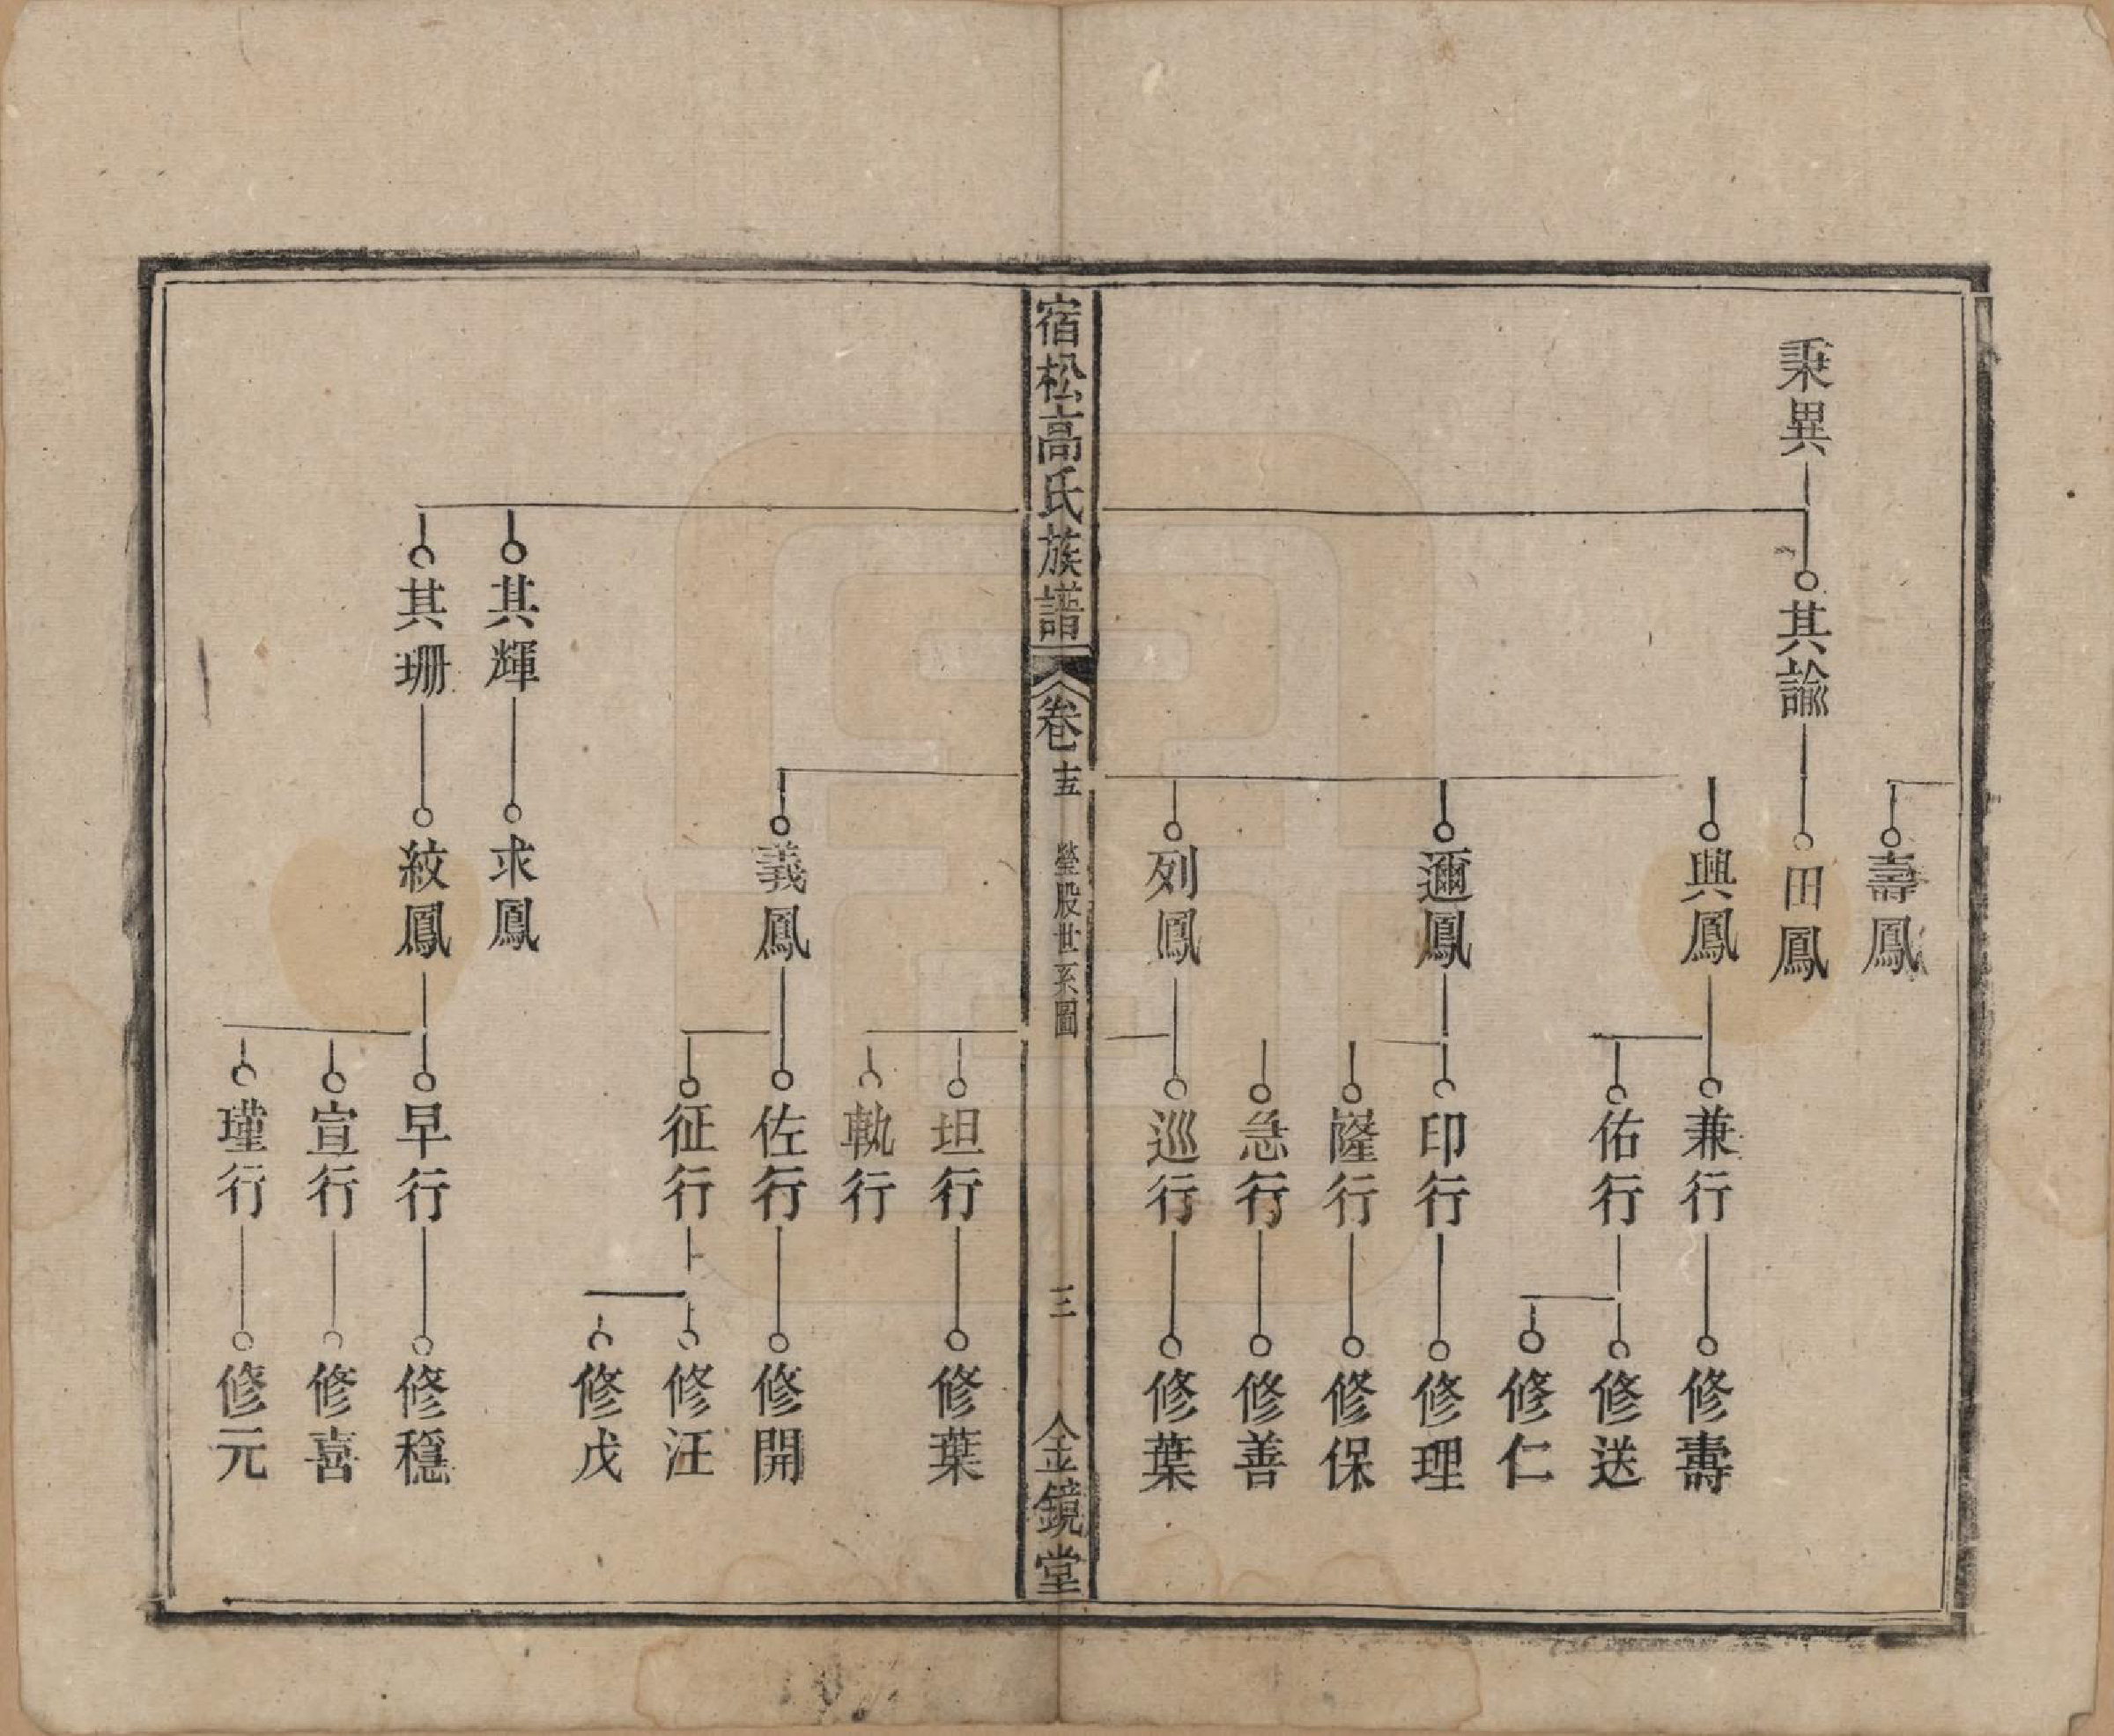 壽鳳
秉異
其諭
田鳳
興鳳
兼行
修壽
佑行
修送
修仁
邇鳳
印行
修理
隆行
修保
急行
修善
列鳳
巡行
修葉
宿松高氏族譜
卷十五
瑩股世系圖
三
金鏡堂
坦行
修葉
執行
義鳳
佐行
修開
征行
修汪
修戊
其輝
求鳳
其珊
紋鳳
早行
修穩
宣行
修喜
瑾行
修元